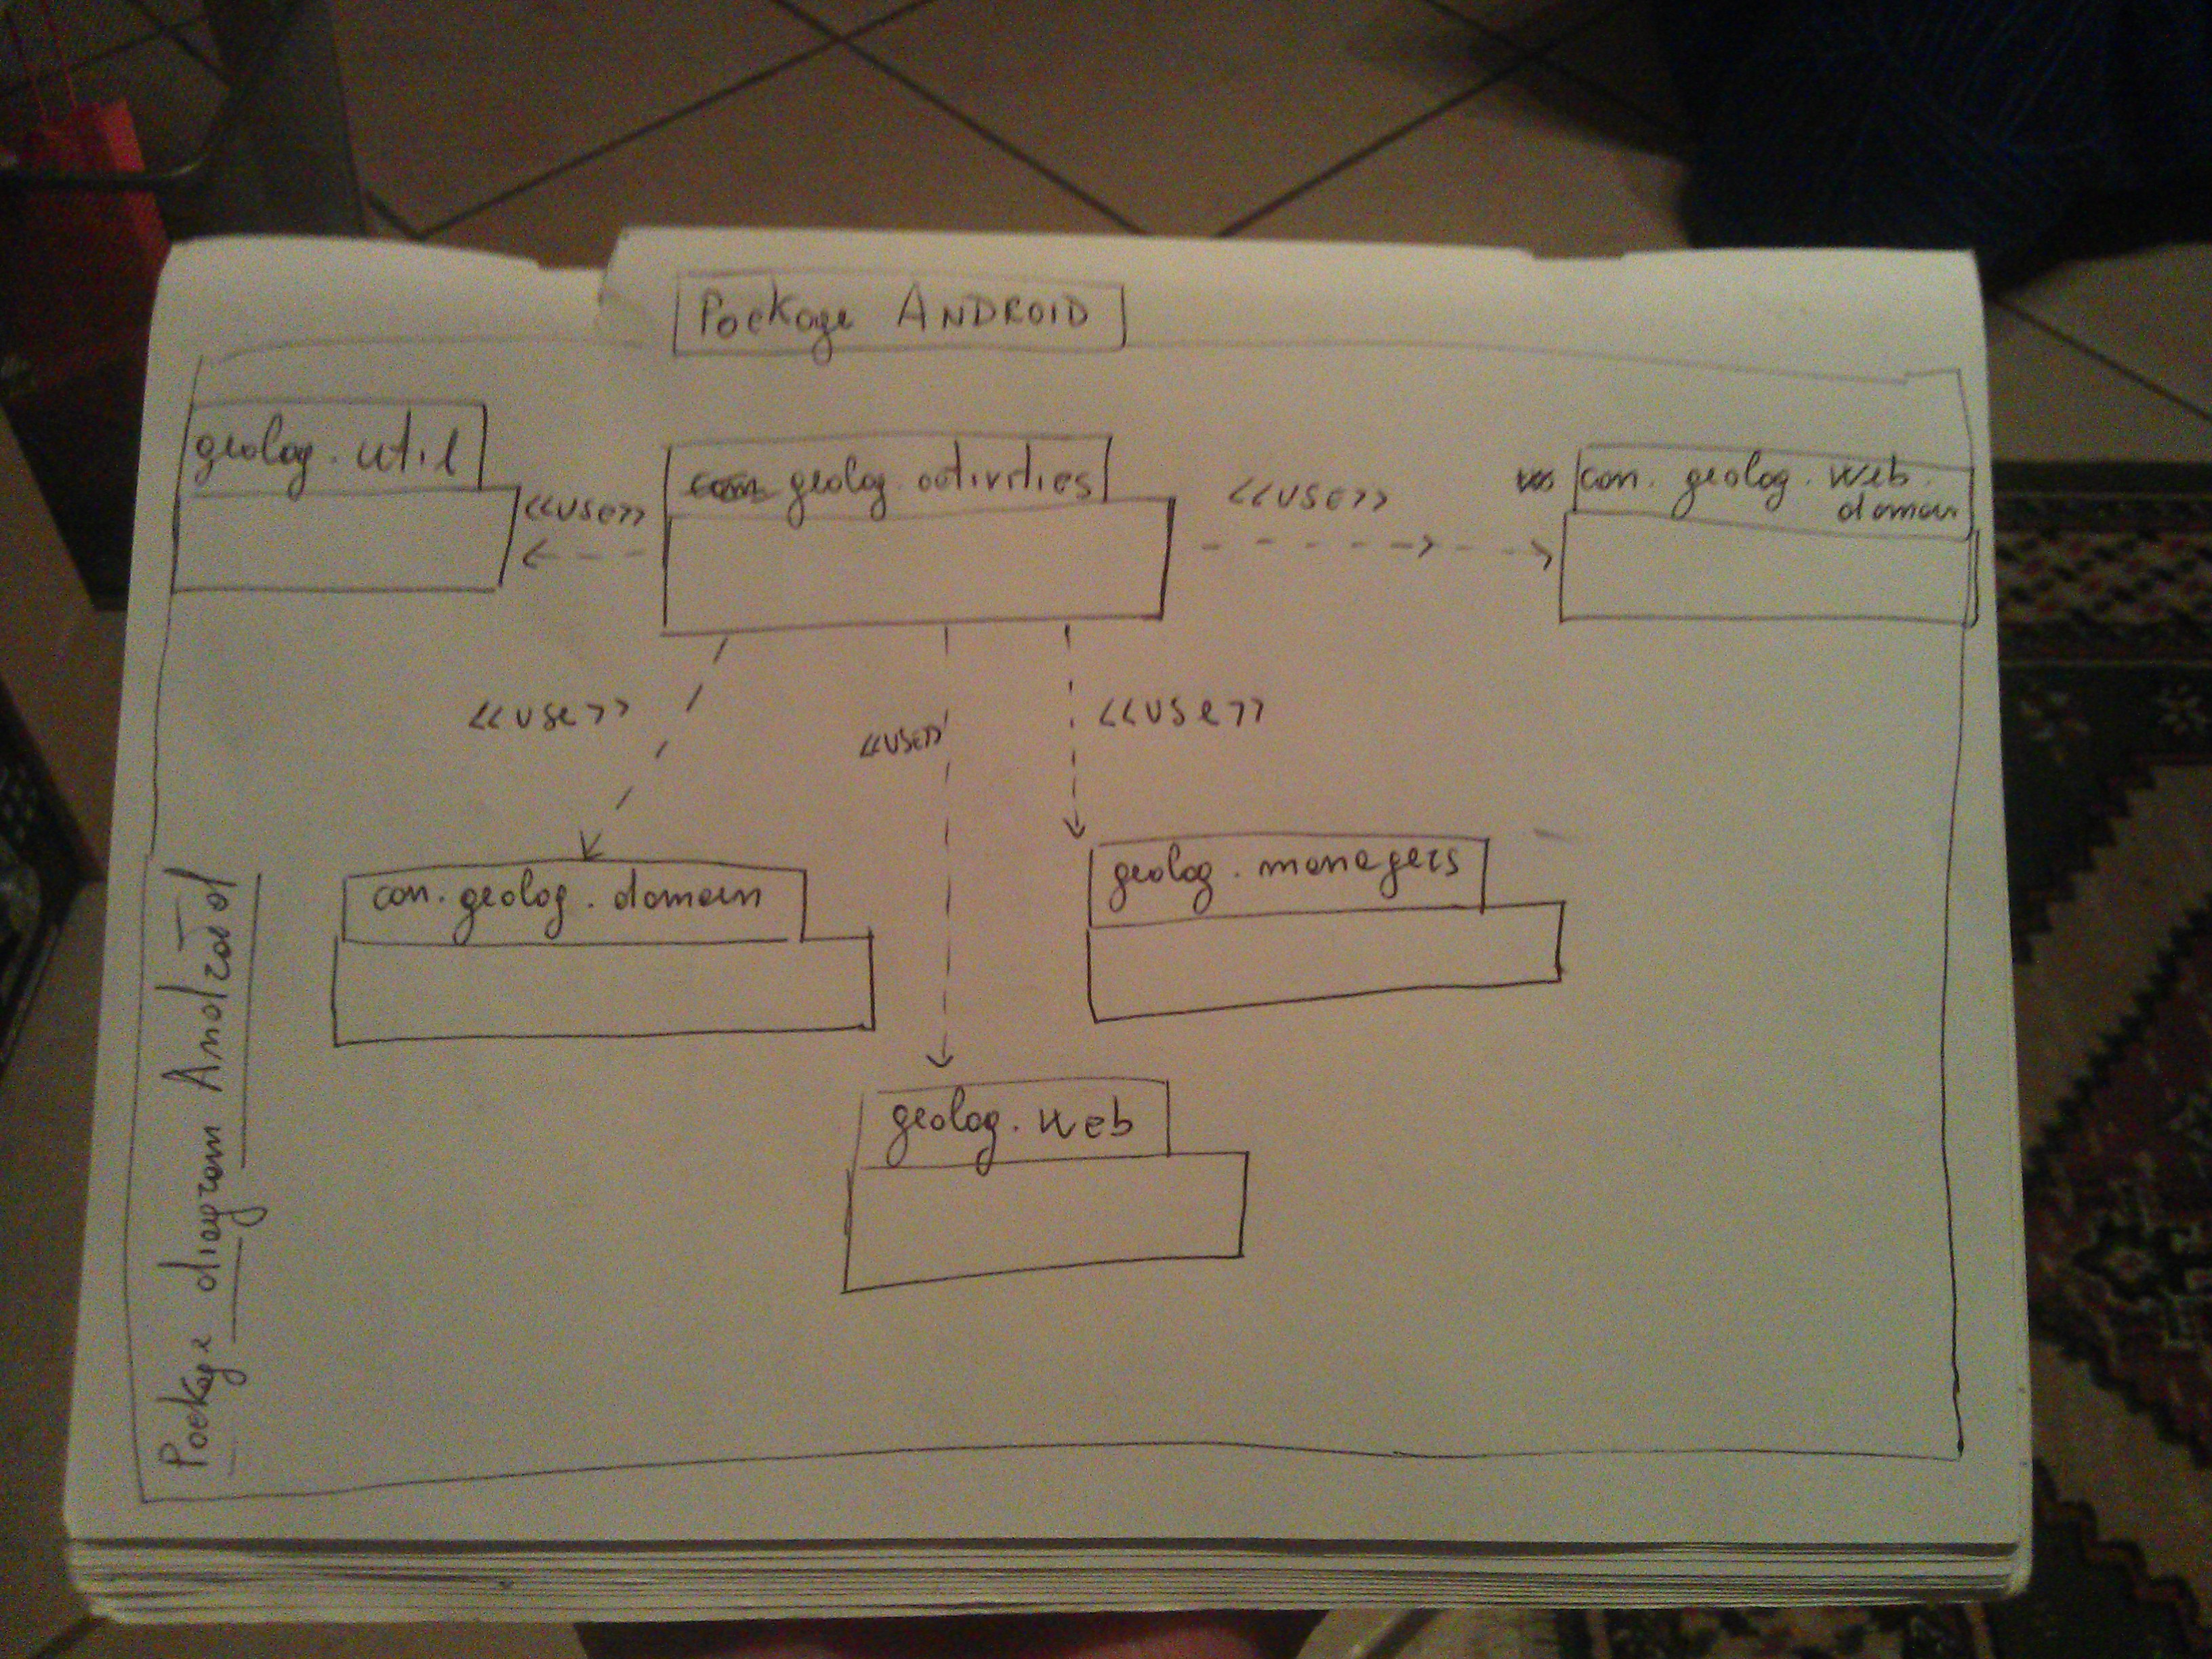 Package ANDROID
geolog.util
geolog.activities
con.geolog.web.
domain
<<use>>
<<use>>
<<use>>
<<use>>
<<use>>
con.geolog.domain
geolog.managers
geolog.web
Package diagram Android